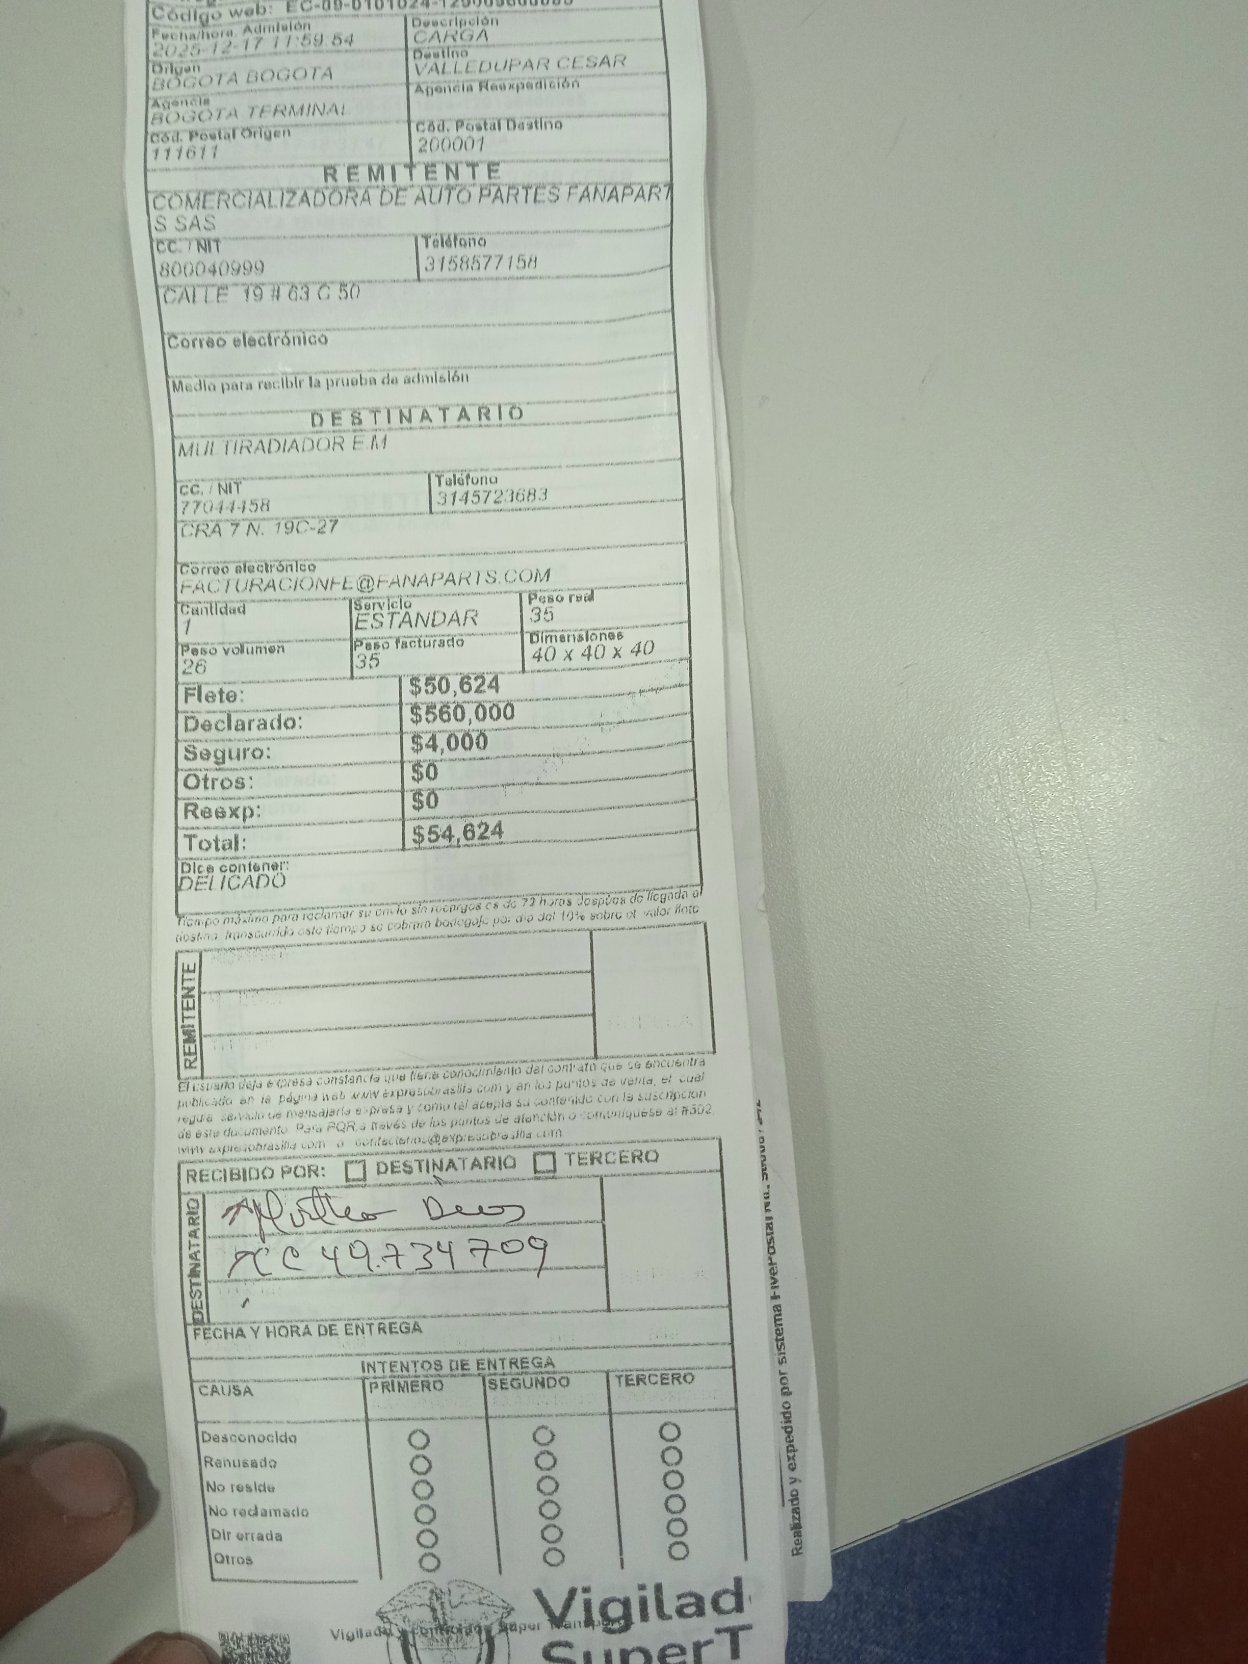 Código web: EC-09-0101024-
Fecha/hora Admisión
2025-12-17 11:59:54
Descripción
CARGA
Origen
BOGOTA BOGOTA
Destino
VALLEDUPAR CESAR
Agencia
BOGOTA TERMINAL
Agencia Reexpedición
Cód. Postal Origen
111611
Cód. Postal Destino
200001
REMITENTE
COMERCIALIZADORA DE AUTO PARTES FANAPART
S SAS
CC. / NIT
800040999
Teléfono
3158577158
CALLE 19 # 63 G 50
Correo electrónico
Medio para recibir la prueba de admisión
DESTINATARIO
MULTIRADIADOR E.M
CC. / NIT
77044458
Teléfono
3145723683
CRA 7 N. 19C-27
Correo electrónico
FACTURACIONFE@FANAPARTS.COM
Cantidad
1
Servicio
ESTANDAR
Peso real
35
Peso volumen
26
Peso facturado
35
Dimensiones
40 x 40 x 40
Flete: $50,624
Declarado: $560,000
Seguro: $4,000
Otros: $0
Reexp: $0
Total: $54,624
Dice contener:
DELICADO
Tiempo máximo para reclamar su envío sin recargos es de 72 horas después de llegada al
destino, transcurrido este tiempo se cobrara bodegaje por día del 10% sobre el valor flete
REMITENTE
El usuario deja expresa constancia que tiene conocimiento del contrato que se encuentra
publicado en la página web www.expresobrasilia.com y en los puntos de venta, el cual
regula servicio de mensajería expresa y como tal acepta su contenido con la suscripción
de este documento. Para PQR a través de los puntos de atención o comuníquese al #502
www.expresobrasilia.com o contactenos@expresobrasilia.com
RECIBIDO POR: DESTINATARIO TERCERO
DESTINATARIO
CC 49.734709
FECHA Y HORA DE ENTREGA
INTENTOS DE ENTREGA
CAUSA PRIMERO SEGUNDO TERCERO
Desconocido
Rehusado
No reside
No reclamado
Dir errada
Otros
Vigilad
SuperT
Realizado y expedido por sistema